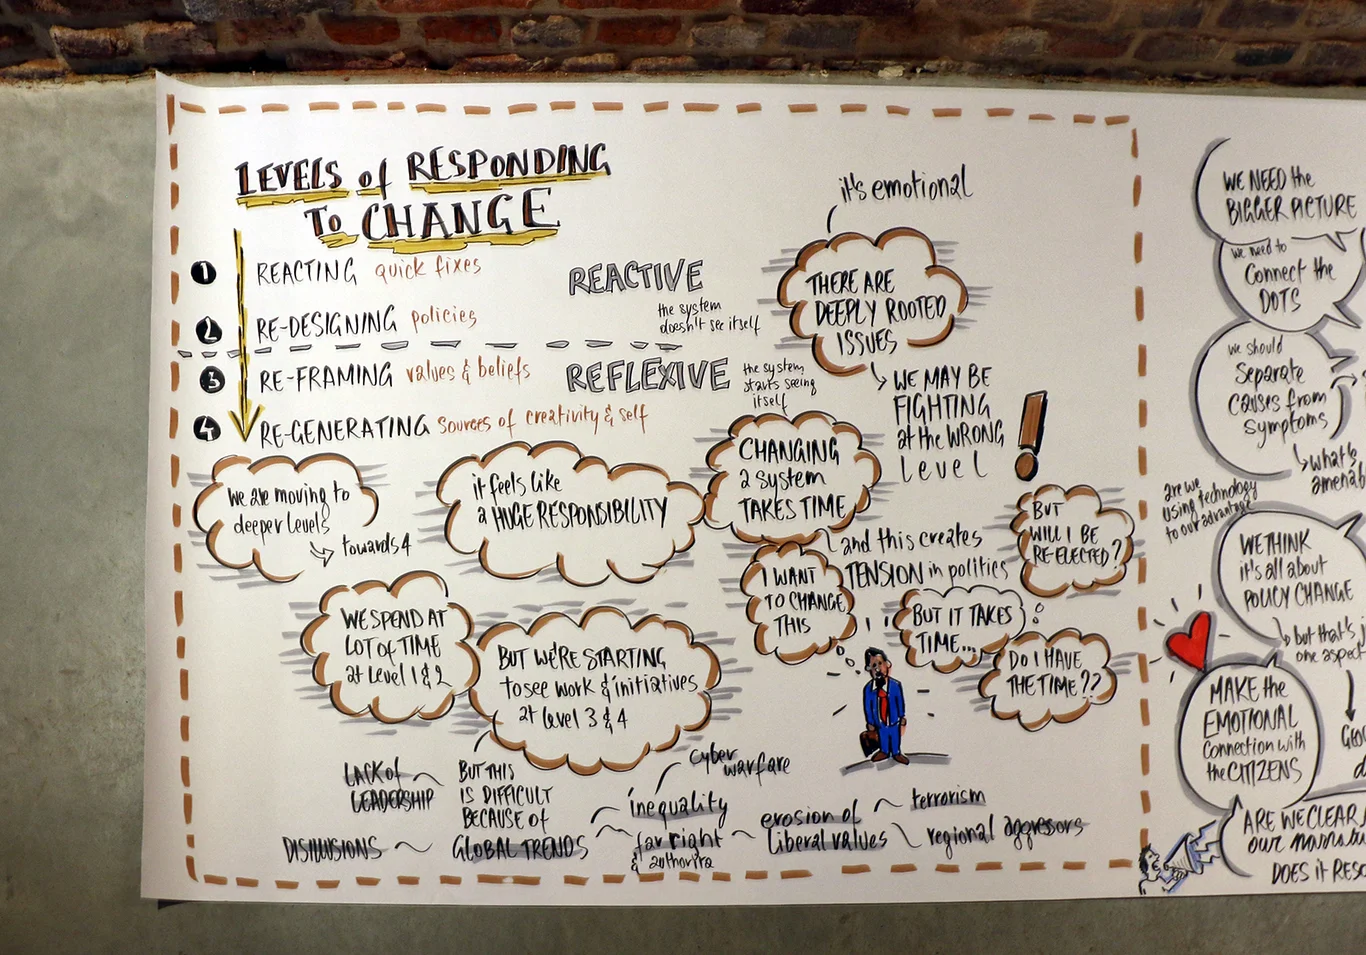 LEVELS of RESPONDING
TO CHANGE
1 REACTING quick fixes
2 RE-DESIGNING policies
3 RE-FRAMING values & beliefs
4 RE-GENERATING Sources of creativity & self
REACTIVE
the system
doesn't see itself
REFLEXIVE
the system
starts seeing
itself
it's emotional
THERE ARE
DEEPLY ROOTED
ISSUES
WE MAY BE
FIGHTING
at the WRONG
level
!
we are moving to
deeper levels
towards 4
it feels like
a HUGE RESPONSIBILITY
CHANGING
a system
TAKES TIME
and this creates
TENSION in politics
BUT
WILL I BE
RE-ELECTED?
I WANT
TO CHANGE
THIS
BUT IT TAKES
TIME...
DO I HAVE
THE TIME??
WE SPEND AT
LOT of TIME
at Level 1 & 2
BUT WE'RE STARTING
to see work & initiatives
at level 3 & 4
LACK of
LEADERSHIP
BUT THIS
IS DIFFICULT
BECAUSE of
GLOBAL TRENDS
DISILLUSIONS
cyber
warfare
inequality
far right
&
erosion of
liberal values
terrorism
regional aggresors
WE NEED the
BIGGER PICTURE
we need to
Connect the
DOTS
we should
Separate
causes from
symptoms
what's
are we
using technology
to our advantage
WE THINK
it's all about
POLICY CHANGE
but that's
one aspect
MAKE the
EMOTIONAL
Connection with
the CITIZENS
ARE WE CLEAR
our
DOES it